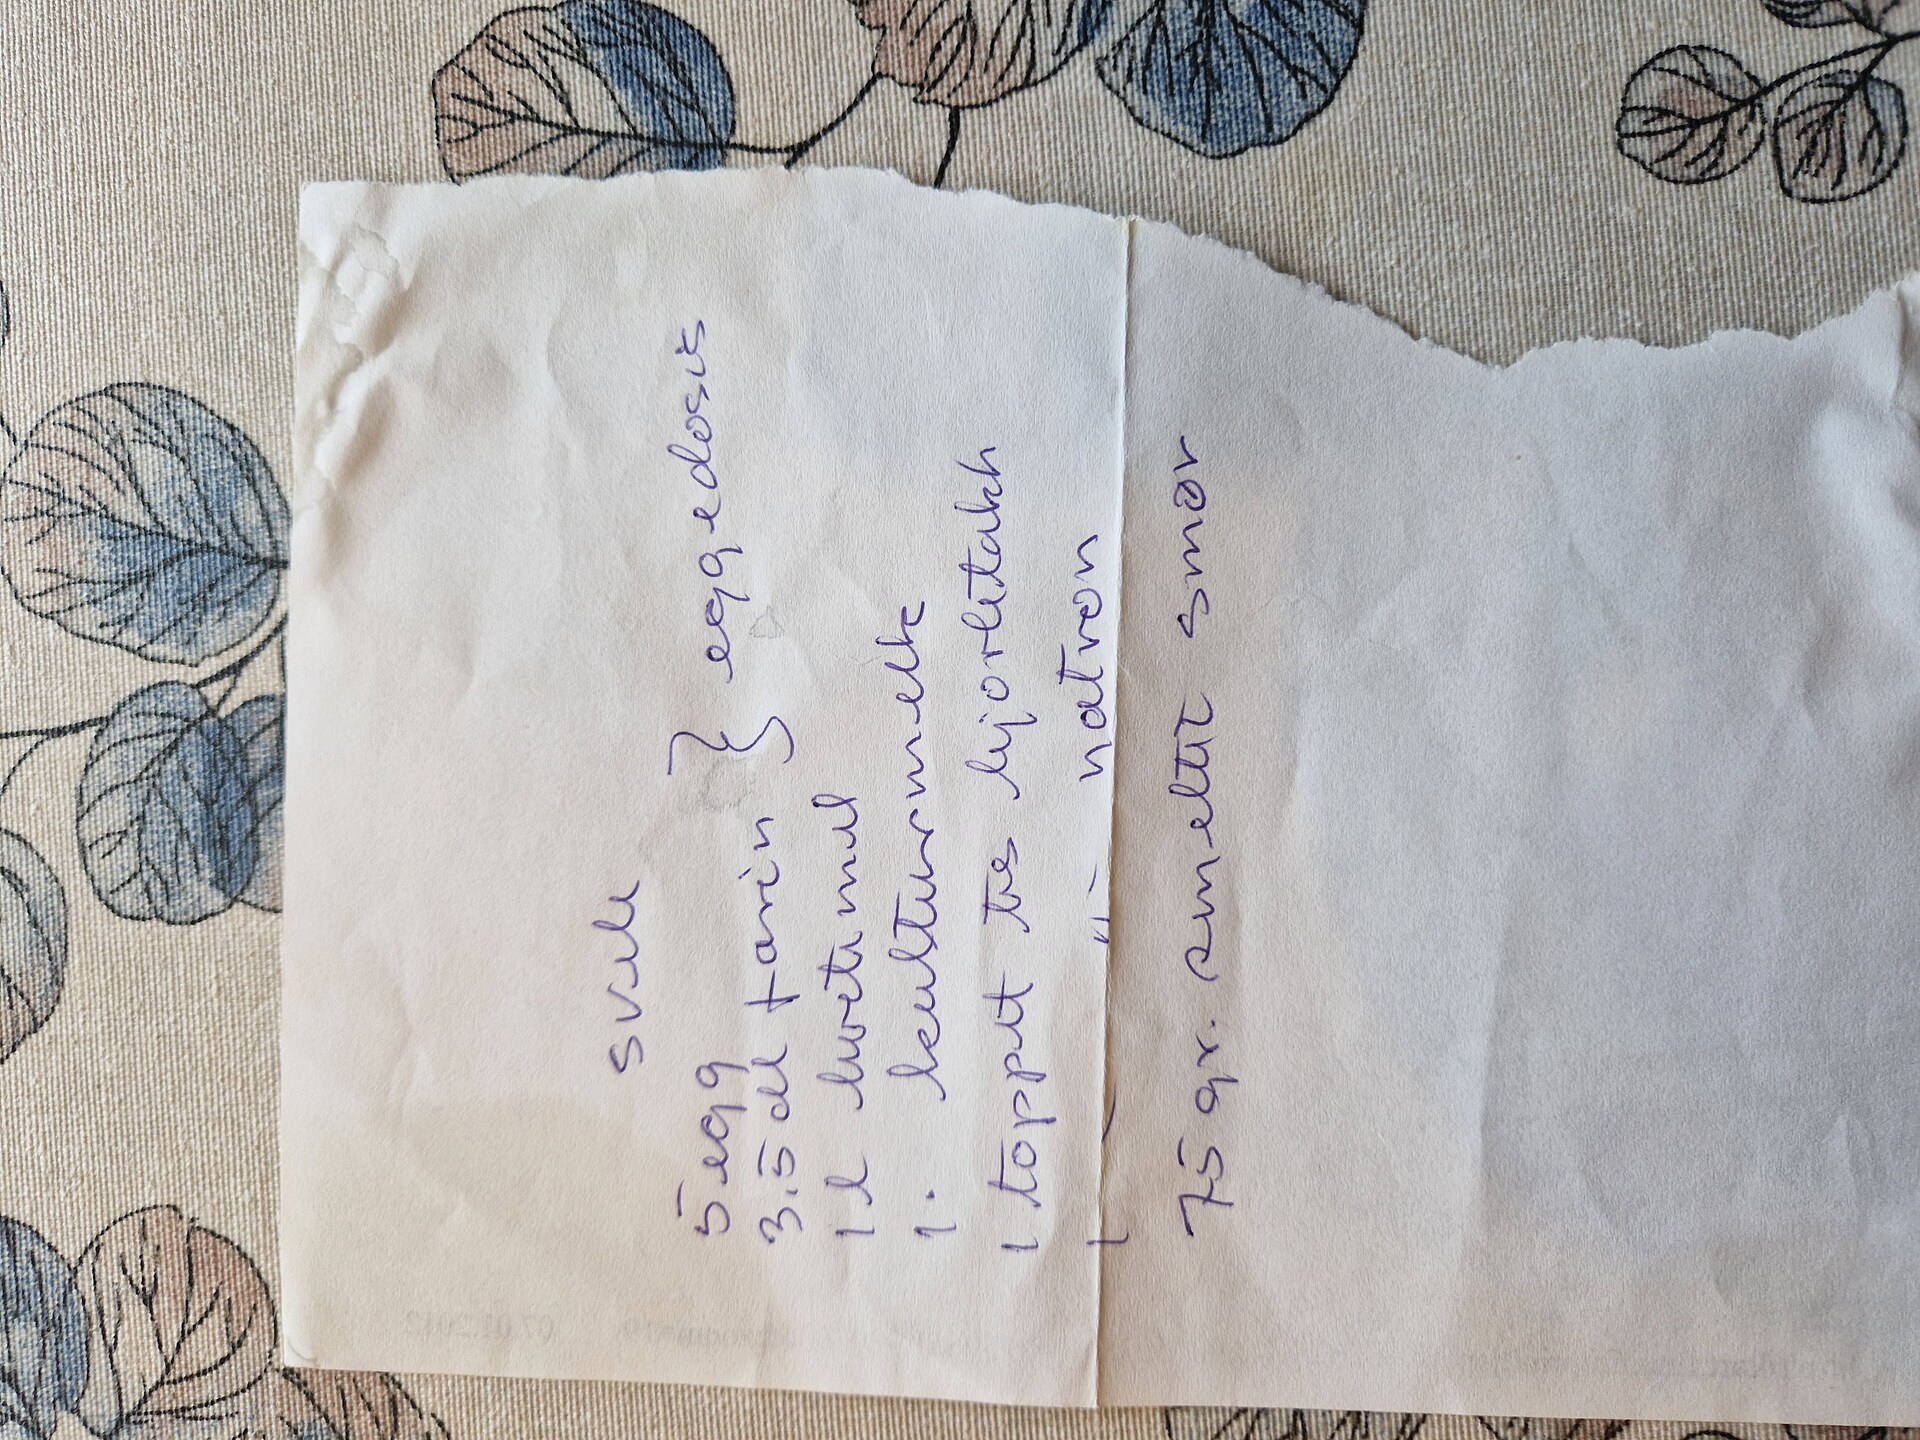 svele
5 egg
3.5 dl farin } eggedosis
1 l hvetemel
1. kulturmelk
1 toppet ts hjortetakk
1 - " - natron
75 gr. smeltet smør